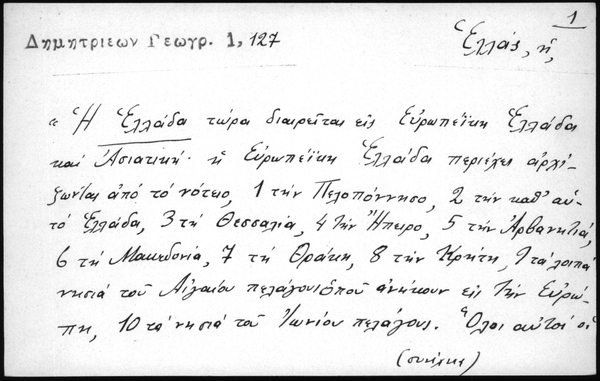 1
Δημητριεων Γεωγρ. 1, 127
Ἑλλάς, ἡ,
« Ἡ Ἑλλάδα τώρα διαιρεῖται εἰς Εὐρωπεϊκη Ἑλλάδα
καί Ἀσιατική· ἡ Εὐρωπεϊκη Ἑλλάδα περιέχει ἀρχί-
ζωντας ἀπό τό νότειο, 1 τήν Πελοπόννησο, 2 τήν καθ' αὑ-
τό Ἑλλάδα, 3 τή Θεσσαλία, 4 τήν Ἤπειρο, 5 τήν Ἀρβανητιά,
6 τή Μακεδονία, 7 τή Θράκη, 8 τήν Κρήτη, 9 τά λοιπά
νησιά τοῦ Αἰγαίου πελάγους ὁποῦ ἀνήκουν εἰς τήν Εὐρώ-
πη, 10 τά νησιά τοῦ Ἰωνίου πελάγους. Ὅλοι αὐτοί οἱ
(συνέχεια)